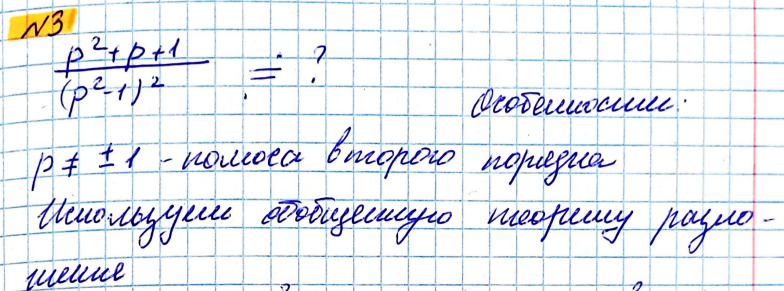 №3
p²+p+1
(p²-1)² ≓ ?
Особенности:
p ≠ ±1 - полюса второго порядка
Используем обобщенную теорему разло-
жения